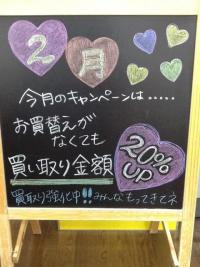 2月
今月のキャンペーンは‥‥‥
お買替えが
なくても
買い取り金額
20%
UP
買取り強化中!!みんなもってきてネ